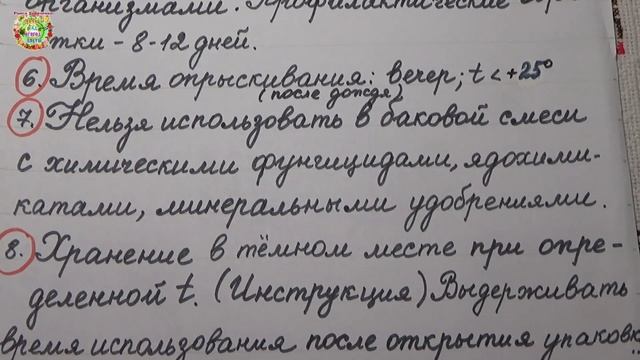 организмами. Профилактические
тки - 8-12 дней.
6. Время опрыскивания: вечер; t < +25°
(после дождя)
7. Нельзя использовать в баковой смеси
с химическими фунгицидами, ядохими-
катами, минеральными удобрениями.
8. Хранение в тёмном месте при опре-
деленной t. (Инструкция) Выдерживать
время использования после открытия упаковк